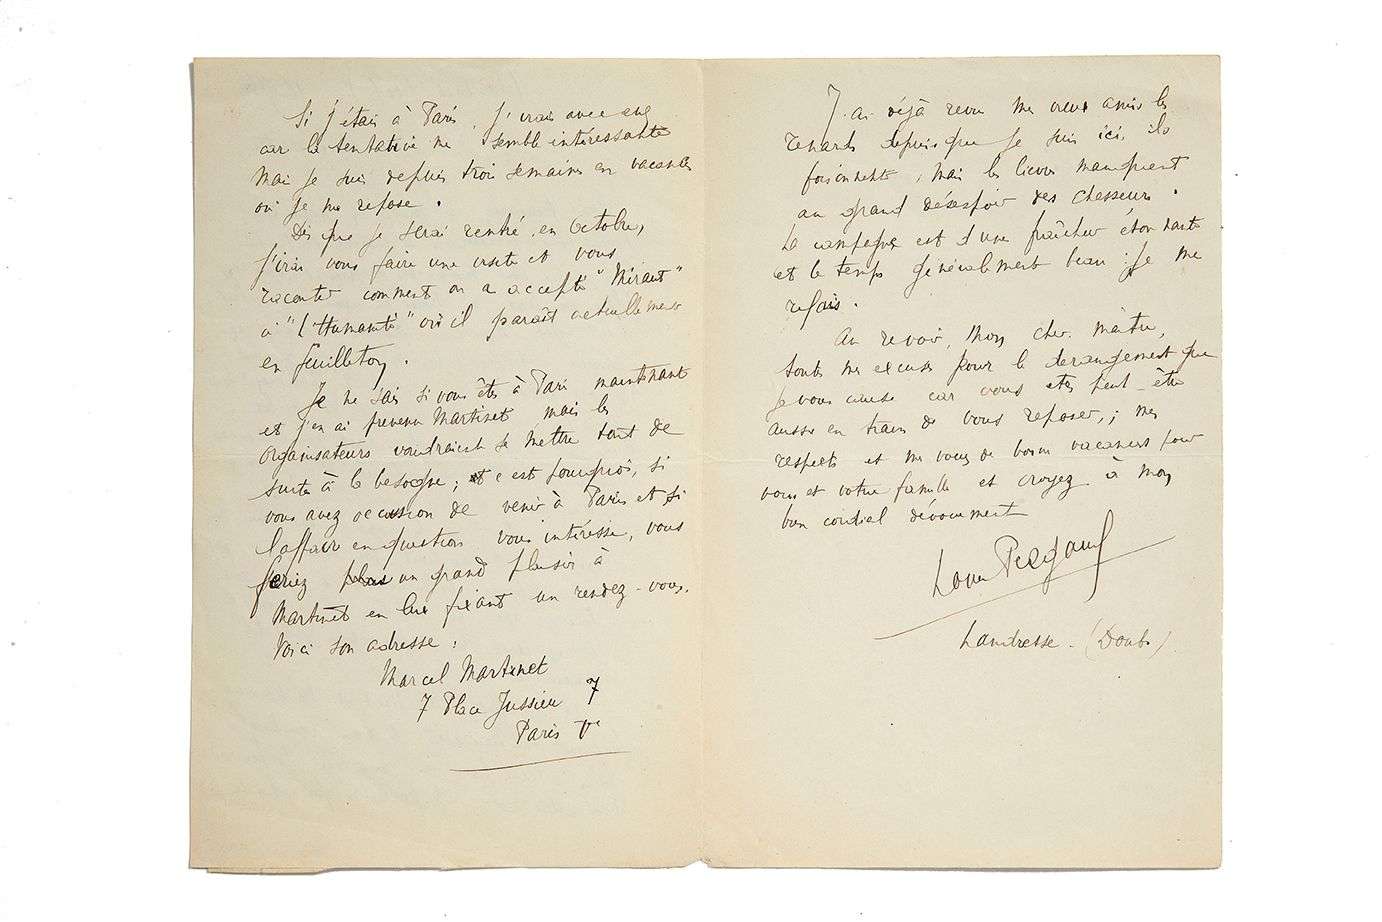 Si j'étais à Paris, j'irais avec eux
car la tentative me semble intéressante
mais je suis depuis trois semaines en vacances
où je me repose.
Dès que je serai rentré, en Octobre,
j'irai vous faire une visite et vous
raconter comment on a accepté "Miraut"
à "l'Humanité" où il paraît actuellement
en feuilleton.
Je ne sais si vous êtes à Paris maintenant
et j'en ai prévenu Martinet mais les
organisateurs voudraient se mettre tout de
suite à la besogne ; et c'est pourquoi, si
vous avez occasion de venir à Paris et si
l'affaire en question vous intéresse, vous
feriez un grand plaisir à
Martinet en lui fixant un rendez-vous.
Voici son adresse :
Marcel Martinet
7 Place Jussieu 7
Paris Ve
J'ai déjà revu mes vieux amis les
renards depuis que je suis ici, ils
foisonnent, mais les lièvres manquent
au grand désespoir des chasseurs.
La campagne est d'une fraîcheur étonnante
et le temps généralement beau : je me
refais.
Au revoir, mon cher maître,
toutes mes excuses pour le dérangement que
je vous cause car vous êtes peut-être
aussi en train de vous reposer ; mes
respects et mes vœux de bonnes vacances pour
vous et votre famille et croyez à mon
bien cordial dévouement
Louis Pergaud
Landresse - (Doubs)